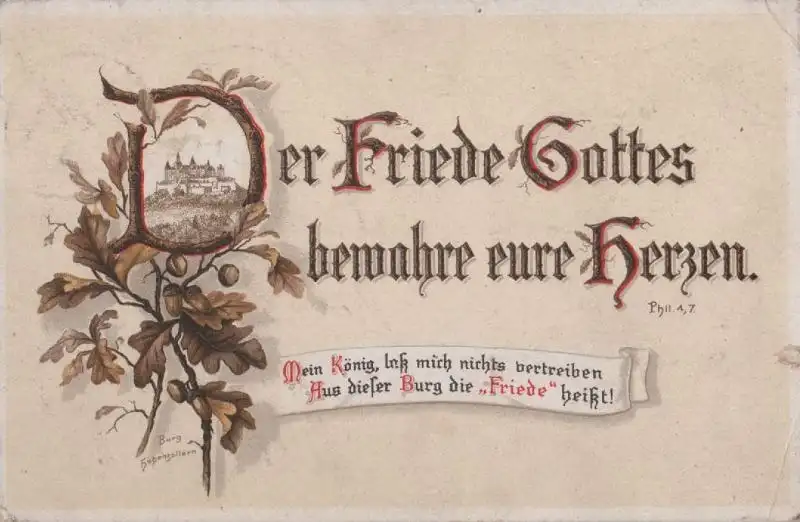 Der Friede Gottes
bewahre eure Herzen.
Phil. 4,7.
Mein König, laß mich nichts vertreiben
Aus dieser Burg die „Friede“ heißt!
Burg
Hohenzollern